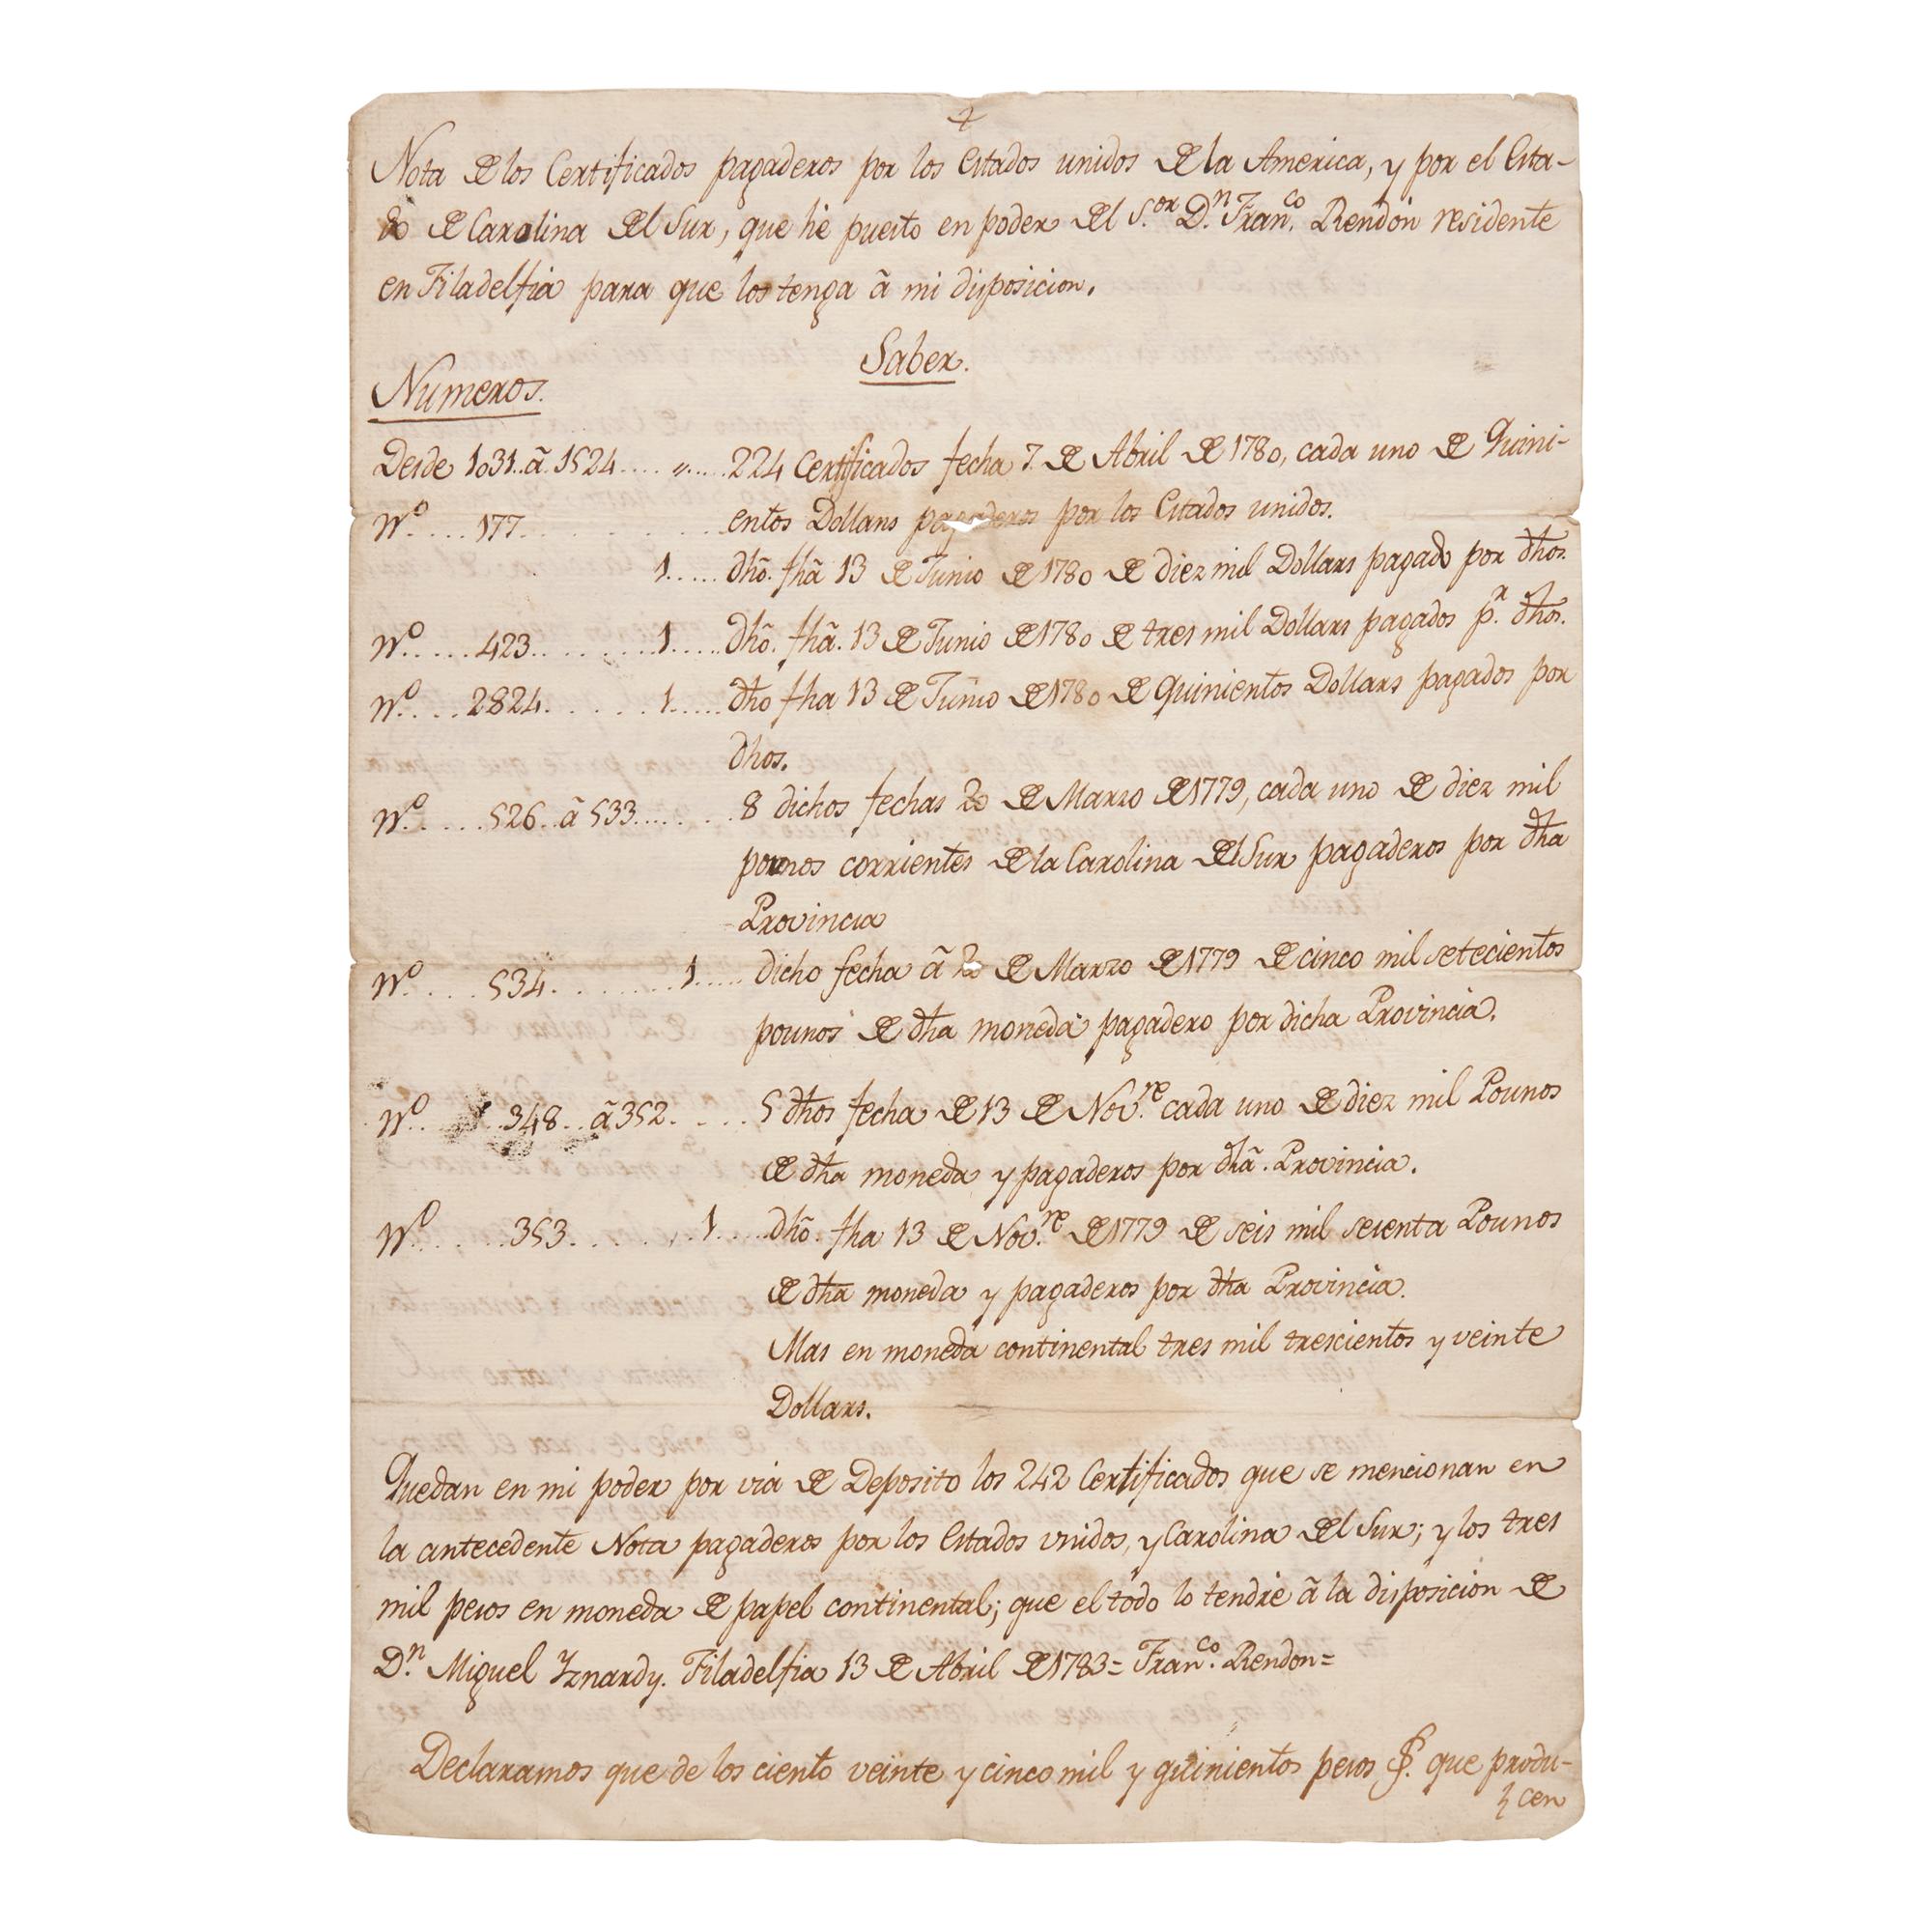 Nota de los Certificados pagaderos por los Estados unidos de la America, y por el Esta-
do de Carolina del Sur, que hé puesto en poder del S.or D.n Fran.co Rendón residente
en Filadelfia para que los tenga ã mi disposicion.
Saber.
Numeros.
Desde 1031..ã..1524.... „ ..... 224 Certificados fecha 7. de Abril de 1780, cada uno de Quini-
entos Dollars pagaderos por los Estados unidos.
N.o .... 177. . . . . . . . .
1..... dhõ. fhã 13 de Junio de 1780 de diez mil Dollars pagado por dhos.
N.o ..... 423. . . . . . . . 1..... dhõ. fhã. 13 de Junio de 1780 de tres mil Dollars pagados p.r dhos.
N.o .... 2824. . . . . . 1..... dho fha 13 de Junio de 1780 de Quinientos Dollars pagados por
dhos.
N.o ..... 526..ã 533....... 8 dichos fechas 20 de Marzo de 1779, cada uno de diez mil
pounos corrientes de la Carolina del Sur pagaderos por dha
Provincia
N.o .... 534. . . . . . . 1..... dicho fecha ã 20 de Marzo de 1779 de cinco mil setecientos
pounos de dha moneda pagadero por dicha Provincia.
N.o .... 348..ã 352. . . . . 5 dhos fecha de 13 de Nov.re cada uno de diez mil Pounos
de dha moneda y pagaderos por dhã. Provincia.
N.o ...... 353. . . . . . 1..... dhõ. fha 13 de Nov.re de 1779 de seis mil sesenta Pounos
de dha moneda y pagaderos por dha Provincia.
Mas en moneda continental tres mil trescientos y veinte
Dollars.
Quedan en mi poder por via de Deposito los 242 Certificados que se mencionan en
la antecedente Nota pagaderos por los Estados vnidos, y Carolina del Sur; y los tres
mil pesos en moneda de papel continental; que el todo lo tendré ã la disposicion de
D.n Miguel Yznardy. Filadelfia 13 de Abril de 1783= Fran.co Rendon=
Declaramos que de los ciento veinte y cinco mil y quinientos pesos que produ-
cen